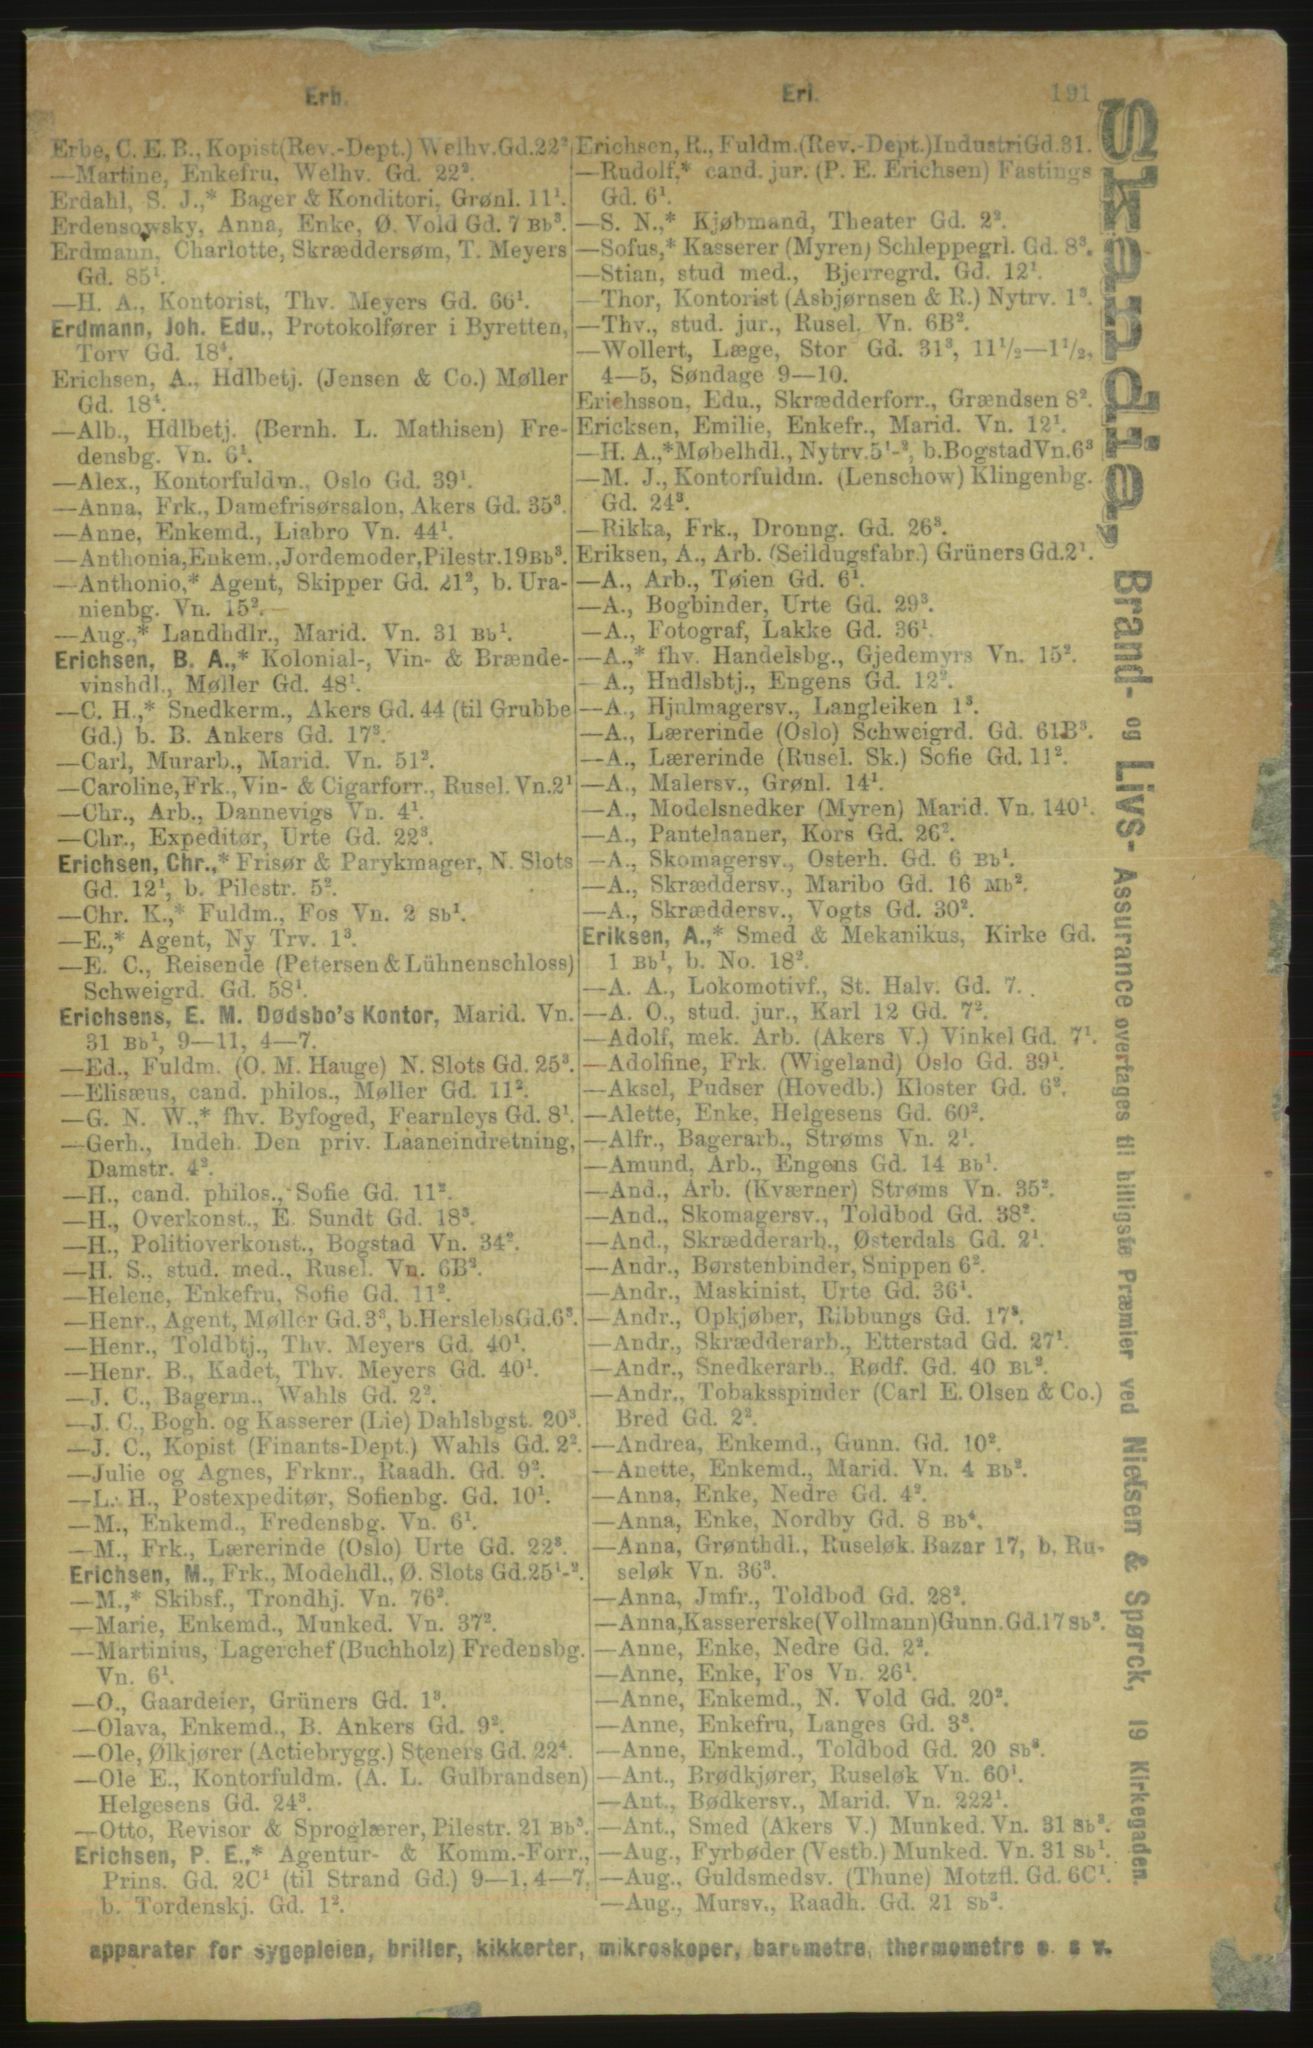 Erh. Eri. 191
Erbe, C. E. B., Kopist (Rev.-Dept.) Welhv. Gd. 22².
—Martine, Enkefru, Welhv. Gd. 22².
Erdahl, S. J.,* Bager & Konditori, Grønl. 11¹.
Erdensowsky, Anna, Enke, Ø. Vold Gd. 7 Bb³.
Erdmann, Charlotte, Skræddersøm, T. Meyers
Gd. 85¹.
—H. A., Kontorist, Thv. Meyers Gd. 66¹.
Erdmann, Joh. Edu., Protokolfører i Byretten,
Torv Gd. 18⁴.
Erichsen, A., Hdlbetj. (Jensen & Co.) Møller
Gd. 18⁴.
—Alb., Hdlbetj. (Bernh. L. Mathisen) Fre-
densbg. Vn. 6¹.
—Alex., Kontorfuldm., Oslo Gd. 39¹.
—Anna, Frk., Damefrisørsalon, Akers Gd. 35³.
—Anne, Enkemd., Liabro Vn. 44¹.
—Anthonia, Enkem., Jordemoder, Pilestr. 19 Bb³.
—Anthonio,* Agent, Skipper Gd. 21², b. Ura-
nienbg. Vn. 15².
—Aug.,* Landhdlr., Marid. Vn. 31 Bb¹.
Erichsen, B. A.,* Kolonial-, Vin- & Brænde-
vinshdl., Møller Gd. 48¹.
—C. H.,* Snedkerm., Akers Gd. 44 (til Grubbe
Gd.) b. B. Ankers Gd. 17³.
—Carl, Murarb., Marid. Vn. 51².
—Caroline, Frk., Vin- & Cigarforr., Rusel. Vn. 2¹
—Chr., Arb., Dannevigs Vn. 4¹.
—Chr., Expeditør, Urte Gd. 22³.
Erichsen, Chr.,* Frisør & Parykmager, N. Slots
Gd. 12¹, b. Pilestr. 5².
—Chr. K.,* Fuldm., Fos Vn. 2 Sb¹.
—E.,* Agent, Ny Trv. 1³.
—E. C., Reisende (Petersen & Lühnenschloss)
Schweigrd. Gd. 58¹.
Erichsens, E. M. Dødsbo's Kontor, Marid. Vn.
31 Bb¹, 9—11, 4—7.
—Ed., Fuldm. (O. M. Hauge) N. Slots Gd. 25³.
—Elisæus, cand. philos., Møller Gd. 11².
—G. N. W.,* fhv. Byfoged, Fearnleys Gd. 8¹.
—Gerh., Indeh. Den priv. Laaneindretning,
Damstr. 4².
—H., cand. philos., Sofie Gd. 11².
—H., Overkonst., E. Sundt Gd. 18³.
—H., Politioverkonst., Bogstad Vn. 34².
—H. S., stud. med., Rusel. Vn. 6B².
—Helene, Enkefru, Sofie Gd. 11².
—Henr., Agent, Møller Gd. 3³, b. Herslebs Gd. 6³.
—Henr., Toldbtj., Thv. Meyers Gd. 40¹.
—Henr. B., Kadet, Thv. Meyers Gd. 40¹.
—J. C., Bagerm., Wahls Gd. 2².
—J. C., Bogh. og Kasserer (Lie) Dahlsbgst. 20³.
—J. C., Kopist (Finants-Dept.) Wahls Gd. 2².
—Julie og Agnes, Frknr., Raadh. Gd. 9².
—L. H., Postexpeditør, Sofienbg. Gd. 10¹.
—M., Enkemd., Fredensbg. Vn. 6¹.
—M., Frk., Lærerinde (Oslo) Urte Gd. 22³.
Erichsen, M., Frk., Modehdl., Ø. Slots Gd. 25¹-².
—M.,* Skibsf., Trondhj. Vn. 76².
—Marie, Enkemd., Munked. Vn. 37².
—Martinius, Lagerchef (Buchholz) Fredensbg.
Vn. 6¹.
—O., Gaardeier, Grüners Gd. 1³.
—Olava, Enkemd., B. Ankers Gd. 9².
—Ole, Ølkjører (Actiebrygg.) Steners Gd. 22⁴.
—Ole E., Kontorfuldm. (A. L. Gulbrandsen)
Helgesens Gd. 24³.
—Otto, Revisor & Sproglærer, Pilestr. 21 Bb³.
Erichsen, P. E.,* Agentur- & Komm.-Forr.,
Prins. Gd. 2C¹ (til Strand Gd.) 9—1, 4—7,
b. Tordenskj. Gd. 1².
Erichsen, R., Fuldm. (Rev.-Dept.) Industri Gd. 31.
—Rudolf,* cand. jur. (P. E. Erichsen) Fastings
Gd. 6¹.
—S. N.,* Kjøbmand, Theater Gd. 2².
—Sofus,* Kasserer (Myren) Schleppegrl. Gd. 8³.
—Stian, stud med., Bjerregrd. Gd. 12¹.
—Thor, Kontorist (Asbjørnsen & R.) Nytrv. 1³.
—Thv., stud. jur., Rusel. Vn. 6B².
—Wollert, Læge, Stor Gd. 31³, 11½—1½,
4—5, Søndage 9—10.
Erichsson, Edu., Skrædderforr., Grændsen 8².
Ericksen, Emilie, Enkefr., Marid. Vn. 12¹.
—H. A.,* Møbelhdl., Nytrv. 5¹-², b. Bogstad Vn. 6³
—M. J., Kontorfuldm. (Lenschow) Klingenbg.
Gd. 24³.
—Rikka, Frk., Dronng. Gd. 26³.
Eriksen, A., Arb. (Seildugsfabr.) Grüners Gd. 2¹.
—A., Arb., Tøien Gd. 6¹.
—A., Bogbinder, Urte Gd. 29³.
—A., Fotograf, Lakke Gd. 36¹.
—A.,* fhv. Handelsbg., Gjedemyrs Vn. 15².
—A., Hndlsbtj., Engens Gd. 12².
—A., Hjulmagersv., Langleiken 1³.
—A., Lærerinde (Oslo) Schweigrd. Gd. 61B³.
—A., Lærerinde (Rusel. Sk.) Sofie Gd. 11².
—A., Malersv., Grønl. 14¹.
—A., Modelsnedker (Myren) Marid. Vn. 140¹.
—A., Pantelaaner, Kors Gd. 26².
—A., Skomagersv., Osterh. Gd. 6 Bb¹.
—A., Skræddersv., Maribo Gd. 16 Mb².
—A., Skræddersv., Vogts Gd. 30².
Eriksen, A.,* Smed & Mekanikus, Kirke Gd.
1 Bb¹, b. No. 18².
—A. A., Lokomotivf., St. Halv. Gd. 7.
—A. O., stud. jur., Karl 12 Gd. 7².
—Adolf, mek. Arb. (Akers V.) Vinkel Gd. 7¹.
—Adolfine, Frk. (Wigeland) Oslo Gd. 39¹.
—Aksel, Pudser (Hovedb.) Kloster Gd. 6².
—Alette, Enke, Helgesens Gd. 60².
—Alfr., Bagerarb., Strøms Vn. 2¹.
—Amund, Arb., Engens Gd. 14 Bb¹.
—And., Arb. (Kværner) Strøms Vn. 35².
—And., Skomagersv., Toldbod Gd. 38².
—And., Skrædderarb., Østerdals Gd. 2¹.
—Andr., Børstenbinder, Snippen 6².
—Andr., Maskinist, Urte Gd. 36¹.
—Andr., Opkjøber, Ribbungs Gd. 17³.
—Andr., Skrædderarb., Etterstad Gd. 27¹.
—Andr., Snedkerarb., Rødf. Gd. 40 BL².
—Andr., Tobaksspinder (Carl E. Olsen & Co.)
Bred Gd. 2².
—Andrea, Enkemd., Gunn. Gd. 10².
—Anette, Enkemd., Marid. Vn. 4 Bb².
—Anna, Enke, Nedre Gd. 4².
—Anna, Enke, Nordby Gd. 8 Bb⁴.
—Anna, Grønthdl., Ruseløk. Bazar 17, b. Ru-
seløk Vn. 36³.
—Anna, Jmfr., Toldbod Gd. 28².
—Anna, Kassererske (Vollmann) Gunn. Gd. 17 Sb³.
—Anne, Enke, Nedre Gd. 2².
—Anne, Enke, Fos Vn. 26¹.
—Anne, Enkemd., N. Vold Gd. 20².
—Anne, Enkefru, Langes Gd. 3³.
—Anne, Enkemd., Toldbod Gd. 20 Sb³.
—Ant., Brødkjører, Ruseløk Vn. 60¹.
—Ant., Bødkersv., Marid. Vn. 222¹.
—Ant., Smed (Akers V.) Munked. Vn. 31 Sb².
—Aug., Fyrbøder (Vestb.) Munked. Vn. 31 Sb¹.
—Aug., Guldsmedsv. (Thune) Motzfl. Gd. 6C¹.
—Aug., Mursv., Raadh. Gd. 21 Sb³.
„Skandia„ Brand- og Livs- Assurance overtages til billigste Præmier ved Nielsen & Spørck, 19 Kirkegaden.
apparater for sygepleien, briller, kikkerter, mikroskoper, barometre, thermometre o. s v.